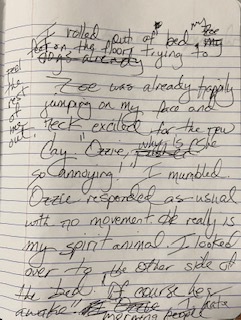 I rolled out of bed, my
foot on the floor trying to
feel the rest of my
Zoe was already happily
jumping on my face and
neck excited for the new
Day. "Ozzie, why is she
so annoying!" I mumbled.
Ozzie responded as usual
with no movement. He really is
my spirit animal. I looked
over to the other side of
the bed. "Of course he's
awake" I hate
morning people